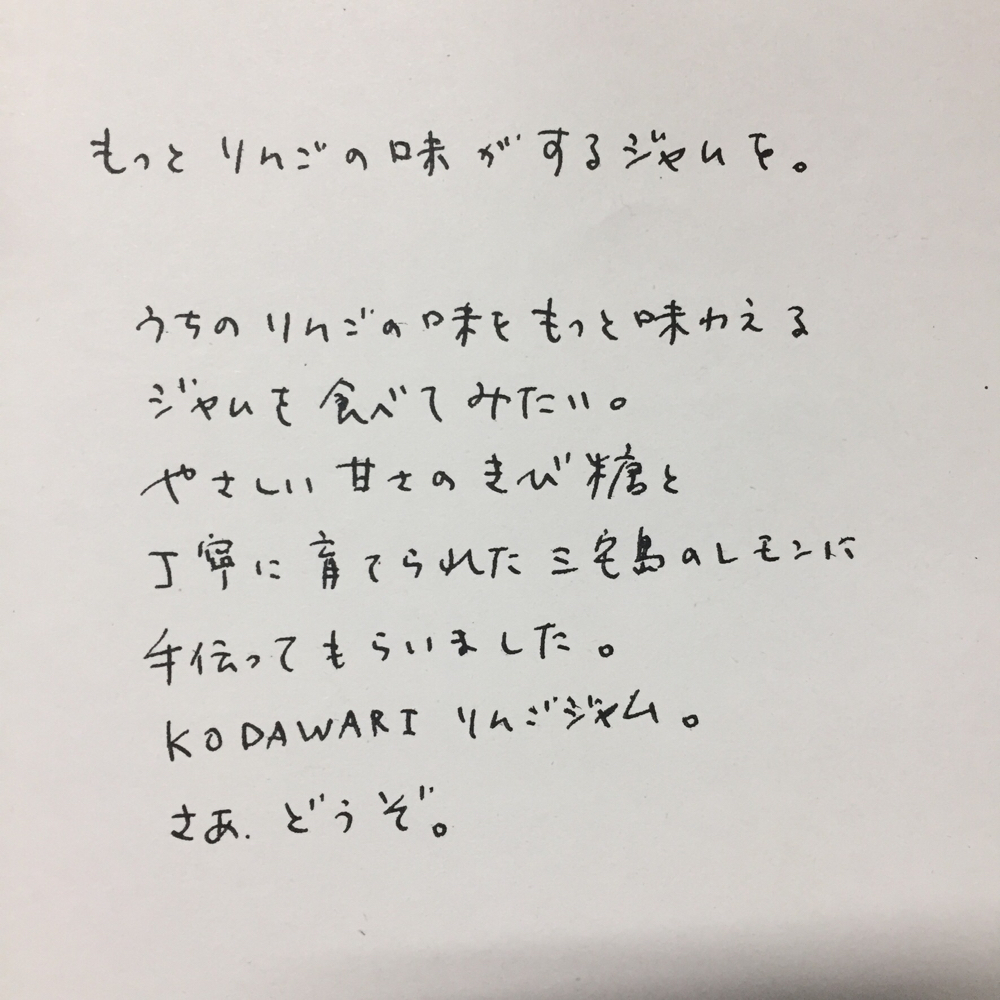 もっとりんごの味がするジャムを。
うちのりんごの味をもっと味わえる
ジャムを食べてみたい。
やさしい甘さのきび糖と
丁寧に育てられた三宅島のレモンに
手伝ってもらいました。
KODAWARI りんごジャム。
さあ、どうぞ。